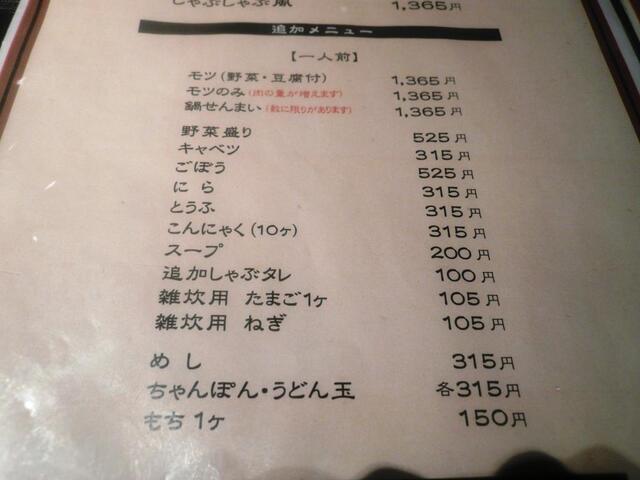 しゃぶしゃぶ風 1,365円
追加メニュー
【一人前】
モツ(野菜・豆腐付) 1,365円
モツのみ(肉の量が増えます) 1,365円
鍋せんまい(数に限りがあります) 1,365円
野菜盛り 525円
キャベツ 315円
ごぼう 525円
にら 315円
とうふ 315円
こんにゃく(10ヶ) 315円
スープ 200円
追加しゃぶタレ 100円
雑炊用 たまご1ヶ 105円
雑炊用 ねぎ 105円
めし 315円
ちゃんぽん・うどん玉 各315円
もち1ヶ 150円